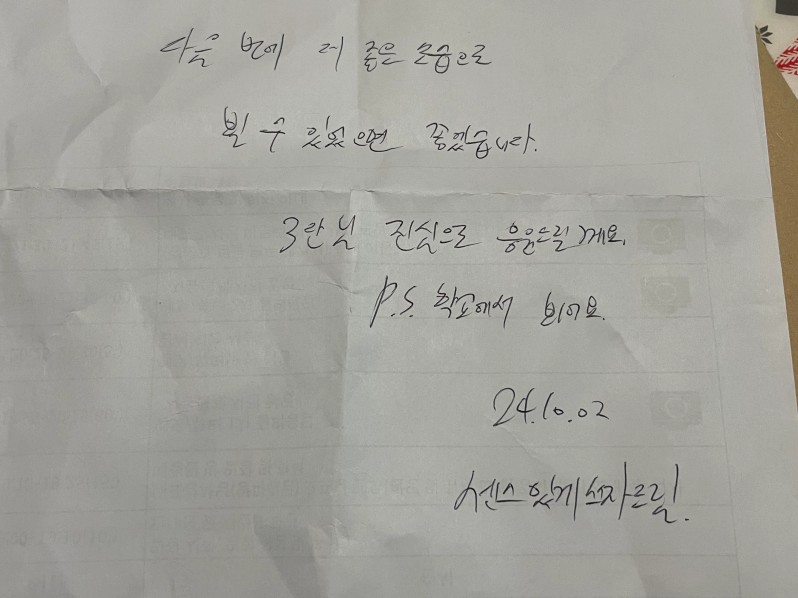 다음 번에 더 좋은 모습으로
뵐 수 있었으면 좋겠습니다.
3만님 진심으로 응원드릴게요.
P.S. 학교에서 봬어요.
24.10.02
센스있게